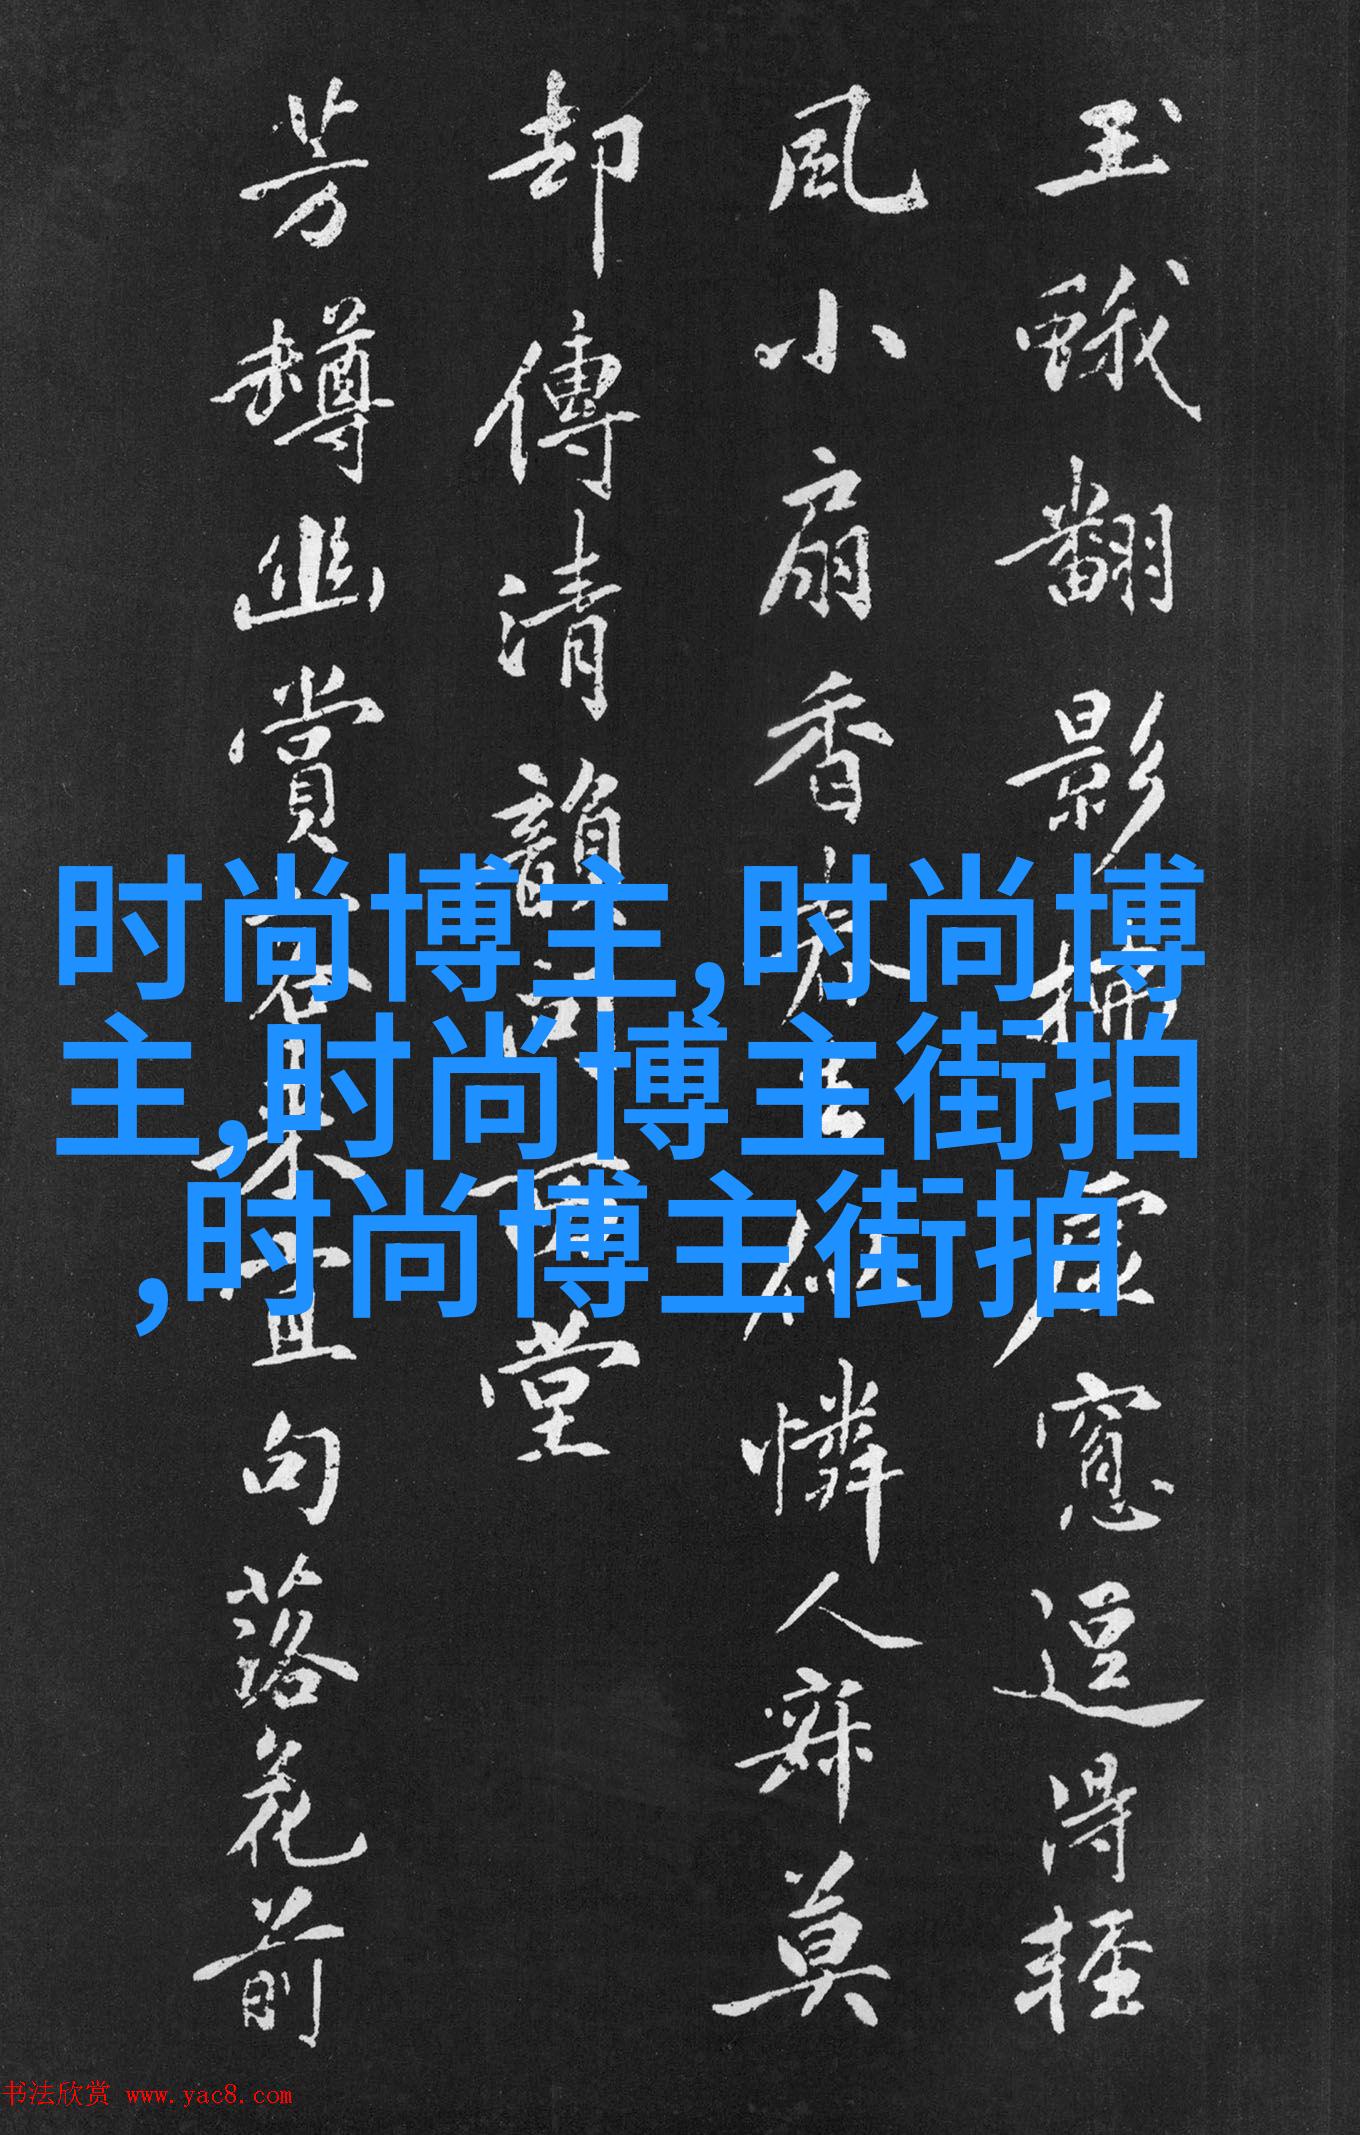 玉蛾翻影掃虛窓逗得輕
風小扇香
憐人寐莫
却傳清韻
堂
芳樽幽賞
句落花前
时尚博主,时尚博
主,时尚博主街拍
,时尚博主街拍
书法欣赏 www.yac8.com